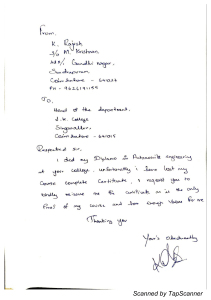 From,
K. Rajesh
S/o M. Krishnan
Gandhi Nagar,
Sundrapuram
Coimbatore - 641024
To,
Head of the department,
College
Singanallur,
Coimbatore - 641015
Respected sir,
I did my Diploma in Automobile engineering
at your college. unfortunately i have lost my
Course complete Certificate, I request you to
kindly reissue me the certificate as is the only
Proof of my course and have enough Value for me
Thanking you
Your's obediently
Scanned by TapScanner